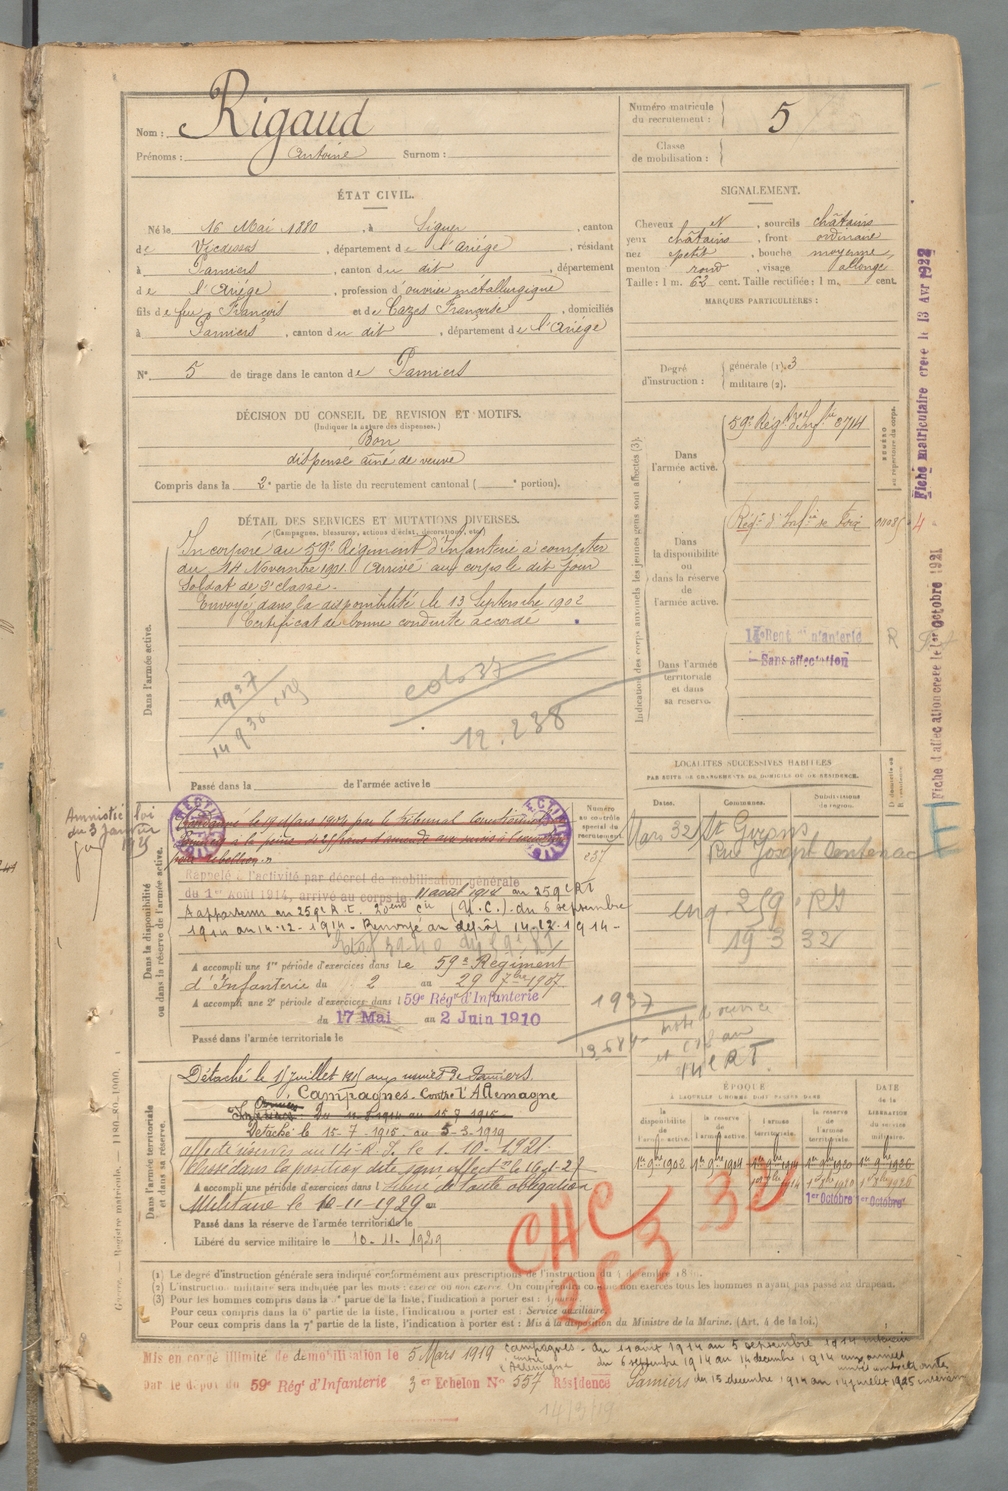 Nom : Rigaud
Prénoms : Antoine Surnom :
Numéro matricule du recrutement : 5
Classe de mobilisation :
ÉTAT CIVIL.
Né le 16 Mai 1880, à Siguer, canton
de Vicdessos, département de l'Ariége, résidant
à Pamiers, canton du dit, département
de l'Ariége, profession d'ouvrier métallurgique
fils de feu François et de Cazes Françoise, domiciliés
à Pamiers, canton du dit, département de l'Ariége
N° 5 de tirage dans le canton de Pamiers
SIGNALEMENT.
Cheveux N, sourcils châtains
yeux châtains, front ordinaire
nez petit, bouche moyenne,
menton rond, visage allongé
Taille : 1 m. 62 cent. Taille rectifiée : 1 m. cent.
MARQUES PARTICULIÈRES :
Degré d'instruction : générale (1). 3
militaire (2).
DÉCISION DU CONSEIL DE REVISION ET MOTIFS.
(Indiquer la nature des dispenses.)
Bon
dispensé aîné de veuve
Compris dans la 2e partie de la liste du recrutement cantonal ( e portion).
DÉTAIL DES SERVICES ET MUTATIONS DIVERSES.
(Campagnes, blessures, actions d'éclat, décorations, etc.)
Dans l'armée active.
Incorporé au 59e Régiment d'Infanterie à compter
du 14 Novembre 1901. Arrivé au corps le dit jour
Soldat de 2e classe.
Envoyé dans la disponibilité le 13 Septembre 1902
Certificat de bonne conduite accordé
1937
12.238
Passé dans la de l'armée active le
Indication des corps auxquels les jeunes gens sont affectés (3).
NUMÉRO au répertoire du corps.
Dans l'armée active.
59e Régt d'Infie 3714
Dans la disponibilité ou dans la réserve de l'armée active.
Régt d'Infie de Foix
Dans l'armée territoriale et dans sa réserve.
14e Regt d'Infanterie
Sans affectation
Fiche matriculaire créée le 13 Avr 1922
Fiche d'affectation créée le 1er Octobre 1921
LOCALITÉS SUCCESSIVES HABITÉES
PAR SUITE DE CHANGEMENTS DE DOMICILE OU DE RÉSIDENCE.
Dates. Communes. Subdivisions de région.
Mars 32 St Girons
Rue Joseph Sentenac
259 RI
19 3 32
Amnistié loi
du 3 Janvier
1925
Dans la disponibilité ou dans la réserve de l'armée active.
Numéro au contrôle spécial du recrutement
Condamné le 19 Mars 1904 par le Tribunal Correctionnel de
pour rébellion
Rappelé à l'activité par décret de mobilisation générale
du 1er Août 1914, arrivé au corps le 11 août 1914 au 259e RI
A appartenu au 259e R.I. 20eme Cie (U.C.) du 6 septembre
1914 au 14-12-1914 - Renvoyé au dépôt 14-12-1914 -
A accompli une 1re période d'exercices dans le 59e Régiment
d'Infanterie du 2 au 29 7bre 1907
A accompli une 2e période d'exercices dans l 59e Régt d'Infanterie
du 17 Mai au 2 Juin 1910
Passé dans l'armée territoriale le
1937
14e RI
Dans l'armée territoriale et dans sa réserve.
Détaché le 15 juillet 1915 aux usines de Pamiers.
Campagnes. Contre l'Allemagne
Détaché le 15-7-1915 au 5-3-1919
affecté réserves au 14e R.I. le 1-10-1921.
Classé dans la position dite sans affectn le 16-1-27
A accompli une période d'exercices dans l
Libéré de toute obligation
Militaire le 10-11-1929
Passé dans la réserve de l'armée territoriale le
Libéré du service militaire le 10-11-1929
ÉPOQUE
À LAQUELLE L'HOMME DOIT PASSER DANS
la disponibilité de l'armée active. la réserve de l'armée active. l'armée territoriale. la réserve de l'armée territoriale.
DATE de la LIBÉRATION du service militaire.
1er 9bre 1902 1er 9bre 1904 1er 9bre 1914 1er 9bre 1920 1er 9bre 1926
1er Octobre 1er Octobre
CHC 32
25-3
(1) Le degré d'instruction générale sera indiqué conformément aux prescriptions de l'instruction du
(2) L'instruction militaire sera indiquée par les mots : exercé ou non exercé. On comprendra comme non exercés tous les hommes n'ayant pas passé au drapeau.
(3) Pour les hommes compris dans la partie de la liste, l'indication à porter est :
Pour ceux compris dans la 6e partie de la liste, l'indication à porter est : Service auxiliaire.
Pour ceux compris dans la 7e partie de la liste, l'indication à porter est : Mis à la disposition du Ministre de la Marine. (Art. 4 de la loi.)
Mis en congé illimité de démobilisation le 5 Mars 1919
Par le dépôt du 59e Régt d'Infanterie 3er Echelon N° 557 Résidence Pamiers
Campagnes contre l'Allemagne
du 11 août 1914 au 5 septembre 1914 intérieur
du 6 septembre 1914 au 14 décembre 1914 aux armées
du 15 décembre 1914 au 14 juillet 1915 intérieur
14/3/19